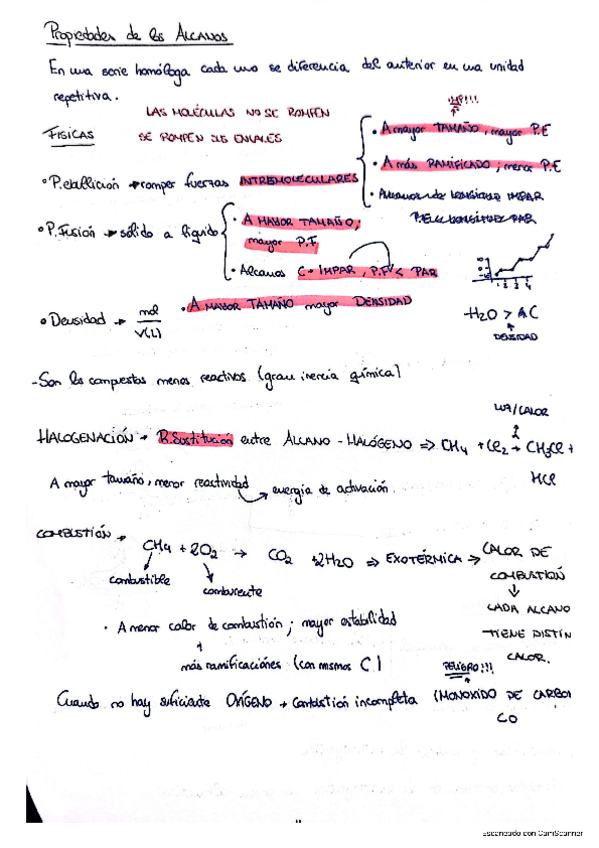 Propiedades de los ALCANOS
En una serie homóloga cada uno se diferencia del anterior en una unidad
repetitiva.
LAS MOLÉCULAS NO SE ROMPEN
SE ROMPEN SUS ENLACES
FÍSICAS
• P. ebullición → romper fuerzas INTREMOLECULARES
!!!
• A mayor TAMAÑO, mayor P.E
• A más RAMIFICADO; menor P.E
• Alcanos de longitud IMPAR
P.E < longitud PAR
• P. Fusión → sólido a líquido
• A MAYOR TAMAÑO;
mayor P.F
• Alcanos C - IMPAR, P.F < PAR
1 2 3 4
• Densidad → mol / V(L)
• A MAYOR TAMAÑO mayor DENSIDAD
-H2O > AC
DENSIDAD
-Son los compuestos menos reactivos (gran inercia química)
LUZ/CALOR
HALOGENACIÓN → R.Sustitución entre ALCANO - HALÓGENO ⇒ CH4 + Cl2 → CH3Cl +
HCl
A mayor tamaño, menor reactividad
→ energía de activación.
COMBUSTIÓN →
CH4 + 2O2 → CO2 + 2H2O ⇒ EXOTÉRMICA → CALOR DE
COMBUSTIÓN
combustible
comburente
CADA ALCANO
TIENE DISTIN
CALOR.
• A menor calor de combustión; mayor estabilidad
más ramificaciones (con mismos C)
PELIGRO!!!
Cuando no hay suficiente OXÍGENO → Combustión incompleta (MONOXIDO DE CARBO
CO
Escaneado con CamScanner